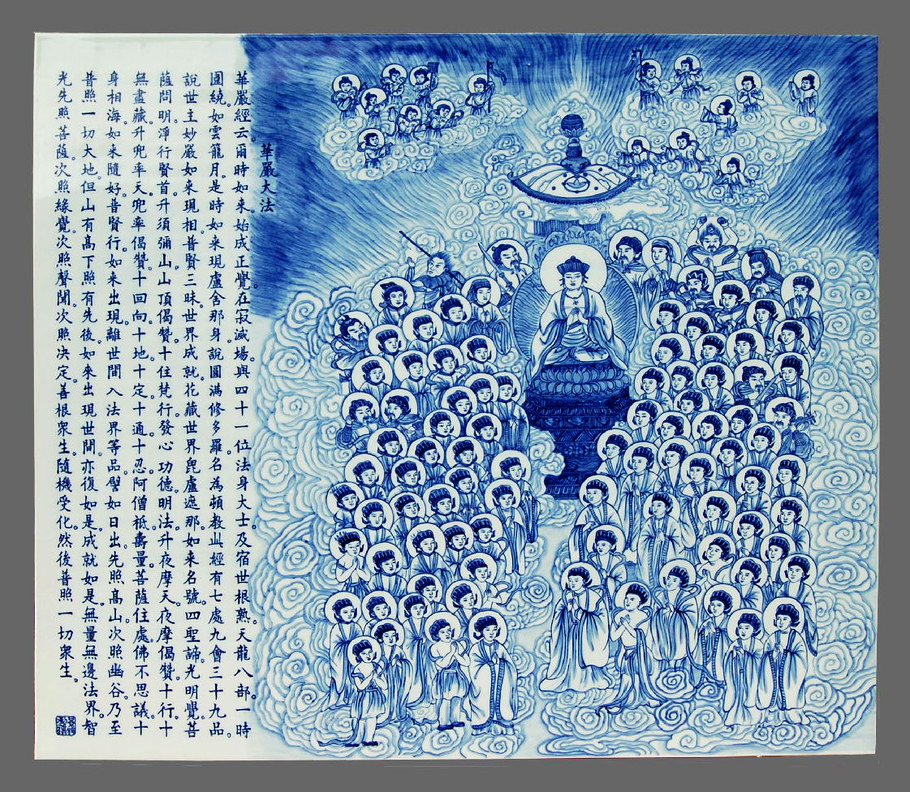 華嚴大法
華嚴經云爾時如來始成正覺。在寂滅場。與四十一位法身大士。及宿世根熟。天龍八部。一時
圍繞。如雲籠月。是時如來現盧舍那身。說圓滿修多羅。名為頓教。此經有七處九會三十九品。
說世主妙嚴。如來現相。普賢三昧。世界成就。花藏世界。毘盧遮那。如來名號。四聖諦。光明覺。菩
薩問明。淨行。賢首。升須彌山。山頂偈讚。十住。梵行。發心功德。明法。升夜摩天。夜摩偈讚。十行。十
無盡藏。升兜率天。兜率偈讚。十回向。十地。十定。十通。十忍。阿僧祗。壽量。菩薩住處。佛不思議。十
身相海。如來隨好。普賢行。如來出現。離世間。入法界等品。譬如日出。先照高山。次照幽谷。乃至
普照一切大地。但山有高下。照有先後。如來出現世間。亦復如是。成就如是。無量無邊法界。智
光先照菩薩。次照緣覺。次照聲聞。次照決定。善根眾生。隨機受化。然後普照一切眾生。